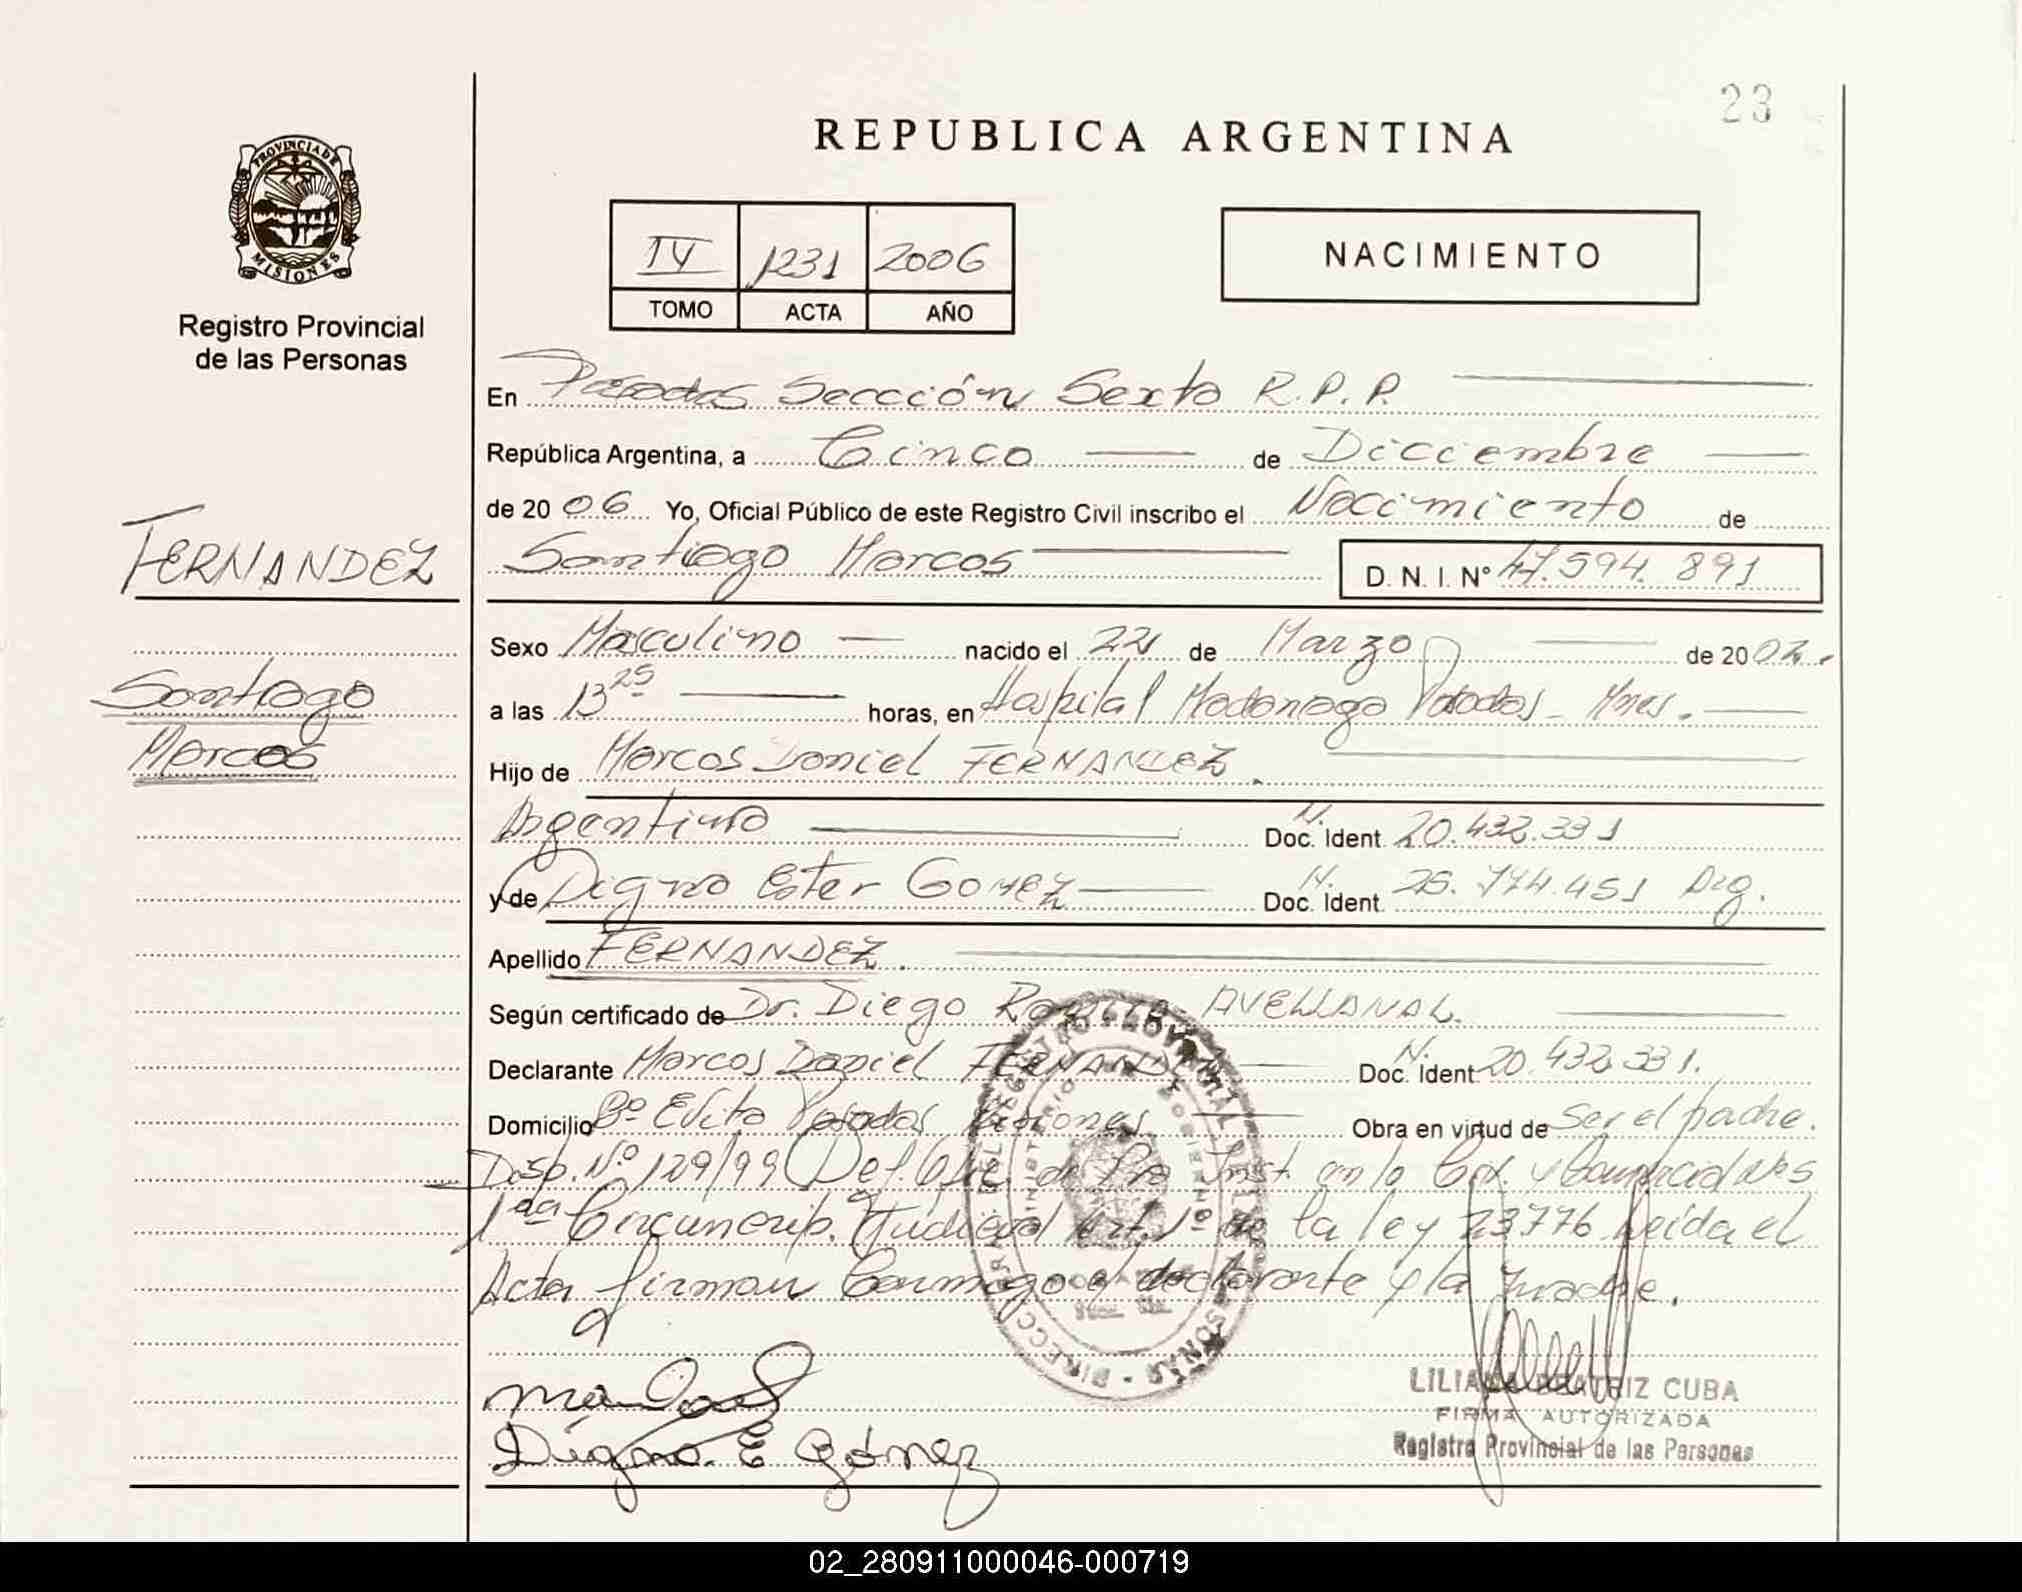 23
REPUBLICA ARGENTINA
PROVINCIA DE
MISIONES
Registro Provincial
de las Personas
IV 1231 2006
TOMO ACTA AÑO
NACIMIENTO
En Posadas Seccción Sexta R.P.P.
República Argentina, a Cinco de Diciembre
de 2006 Yo, Oficial Público de este Registro Civil inscribo el Nacimiento de
FERNANDEZ
Santiago Marcos D. N. I. N° 47.594.891
Sexo Masculino nacido el 22 de Marzo de 2002.
Santiago
a las 13 25 horas, en Hospital Madariaga Posadas - Mnes.
Marcos
Hijo de Marcos Daniel FERNANDEZ.
Argentino Doc. Ident. N. 20.432.331
y de Digna Ester GOMEZ Doc. Ident. N. 25. 451 Arg.
Apellido FERNANDEZ.
Según certificado de Dr. Diego AVELLANAL.
Declarante Marcos Daniel FERNANDEZ Doc. Ident. N. 20.432.331.
Domicilio Bº Evita Posadas Misiones Obra en virtud de Ser el padre.
Disp. Nº 129/99 Def. de Pra Inst. en lo Civ. y Comercial Nº5
1ra Circunscrip. Judicial Art. 1º de la ley 23776 Leída el
Acta firman Conmigo el declarante y la madre.
Digna. E Gómez
LILIANA BEATRIZ CUBA
FIRMA AUTORIZADA
Registro Provincial de las Personas
02_280911000046-000719